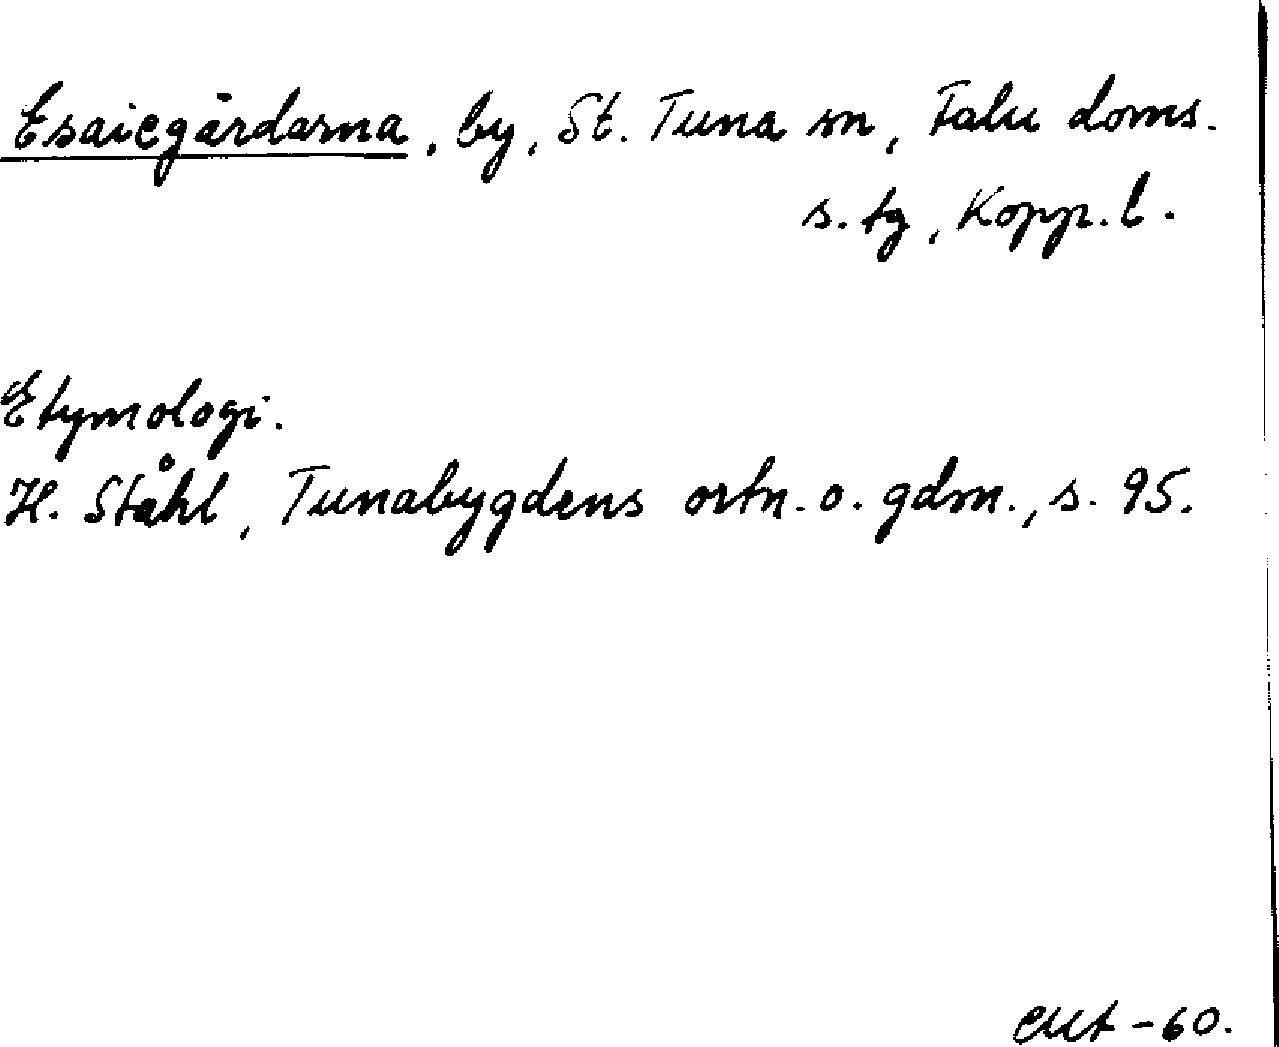 Esaiegårdarna, by, St. Tuna sn, Falu doms.
s. tg, Kopp. l.
Etymologi.
H. Ståhl, Tunabygdens ortn. o. gdn., s. 95.
-60.